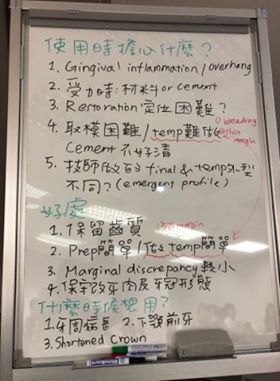 使用時擔心什麼?
1. Gingival inflammation/overhang
2. 受力時:材料or cement
3. Restoration 定位困難?
4. 取模困難/temp難做
bleeding
thin margin
Cement 不好清
5. 技師做的 final & temp外型
不同?(emergent profile)
好處
margin
1. 保留齒質
2. Prep簡單/做temp簡單
3. Marginal discrepancy 較小
4. 保守改牙肉及牙冠形態
什麼時候想用?
1. 牙周病長 2. 下顎前牙
3. Shortoned Crown